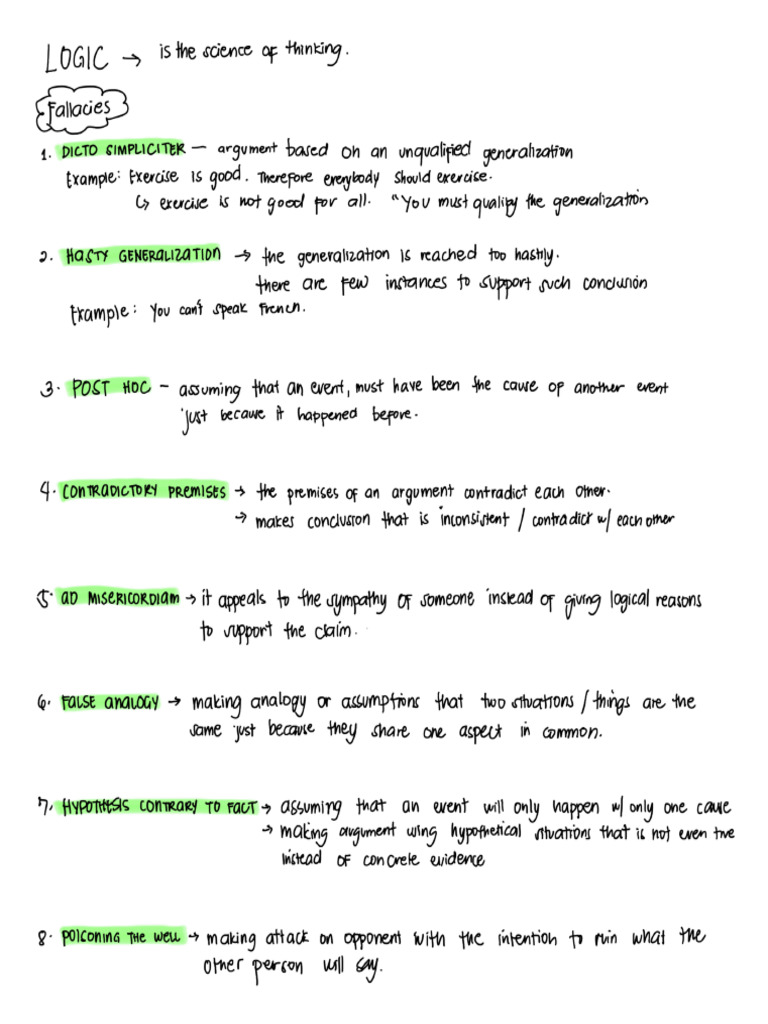 LOGIC → is the science of thinking.
Fallacies
1. DICTO SIMPLICITER — argument based on an unqualified generalization
Example: Exercise is good. Therefore everybody should exercise.
↳ exercise is not good for all. "You must qualify the generalization
2. HASTY GENERALIZATION → the generalization is reached too hastily.
there are few instances to support such conclusion
Example: You can't speak French.
3. POST HOC – assuming that an event, must have been the cause of another event
just because it happened before.
4. CONTRADICTORY PREMISES → the premises of an argument contradict each other.
→ makes conclusion that is inconsistent / contradict w/ each other
5. AD MISERICORDIAM → it appeals to the sympathy of someone instead of giving logical reasons
to support the claim.
6. FALSE ANALOGY → making analogy or assumptions that two situations / things are the
same just because they share one aspect in common.
7. HYPOTHESIS CONTRARY TO FACT → assuming that an event will only happen w/ only one cause
→ making argument using hypothetical situations that is not even true
instead of concrete evidence
8. POISONING THE WELL → making attack on opponent with the intention to ruin what the
other person will say.